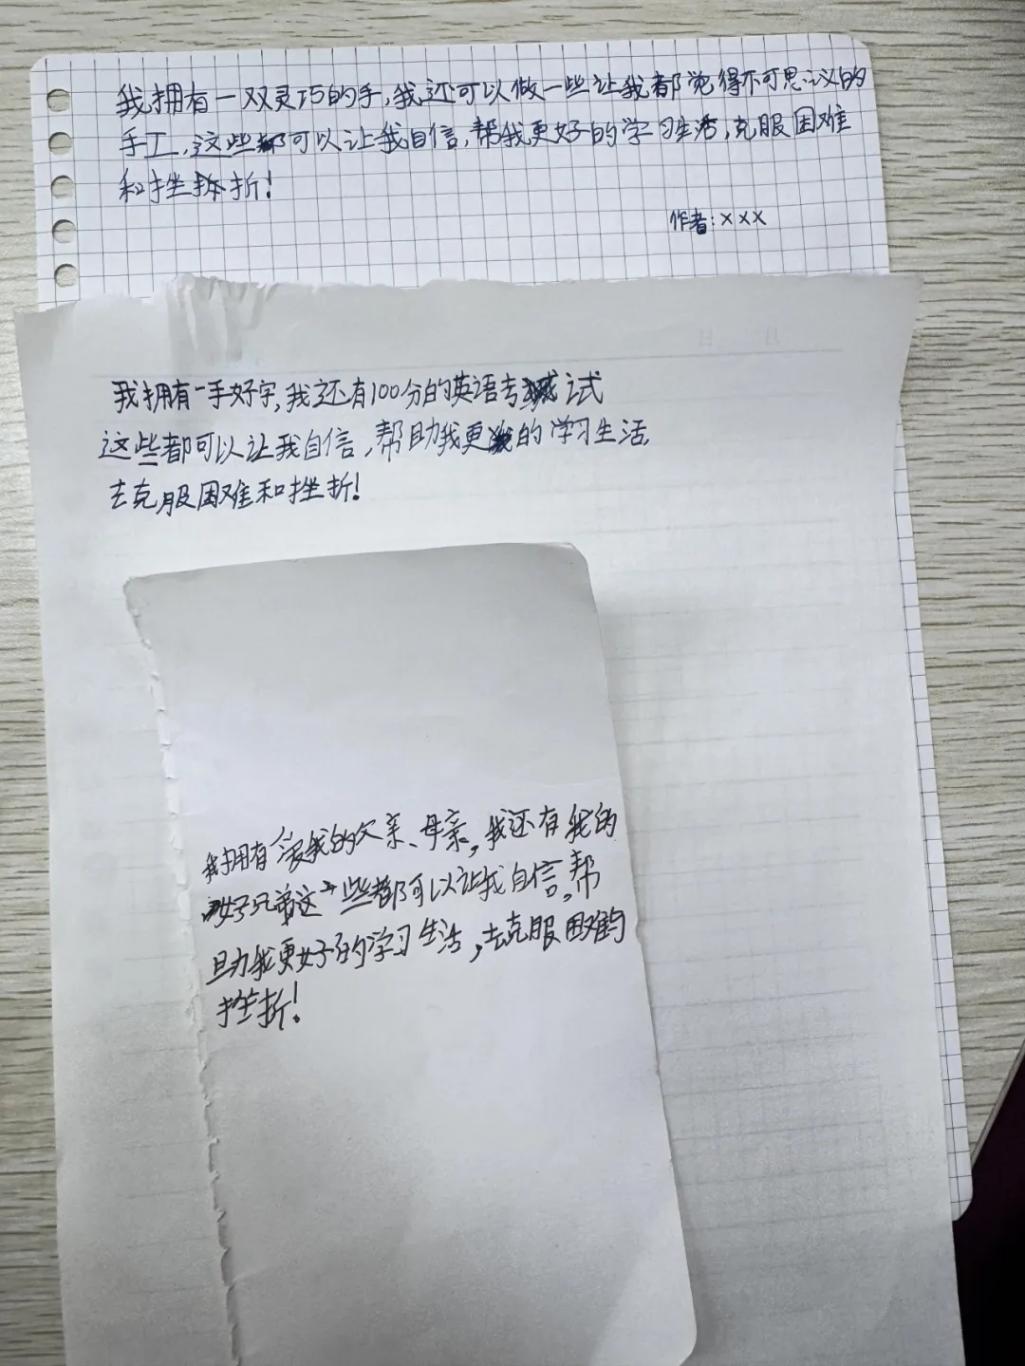 我拥有一双灵巧的手,我还可以做一些让我都觉得不可思议的
手工,这些都可以让我自信,帮我更好的学习生活,克服困难
和挫折!
作者:×××
我拥有一手好字,我还有100分的英语考试
这些都可以让我自信,帮助我更的学习生活,
去克服困难和挫折!
我拥有爱我的父亲、母亲,我还有我的
好兄弟这些都可以让我自信,帮
助我更好的学习生活,去克服困难
挫折!